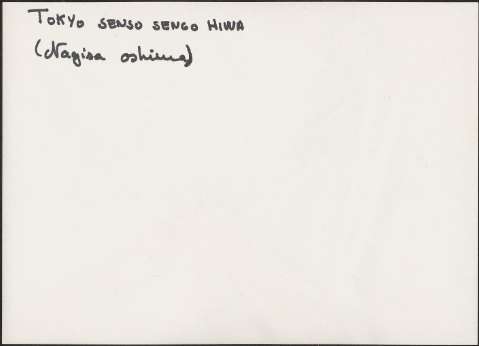 TOKYO SENSO SENGO HIWA
(Nagisa Oshima)